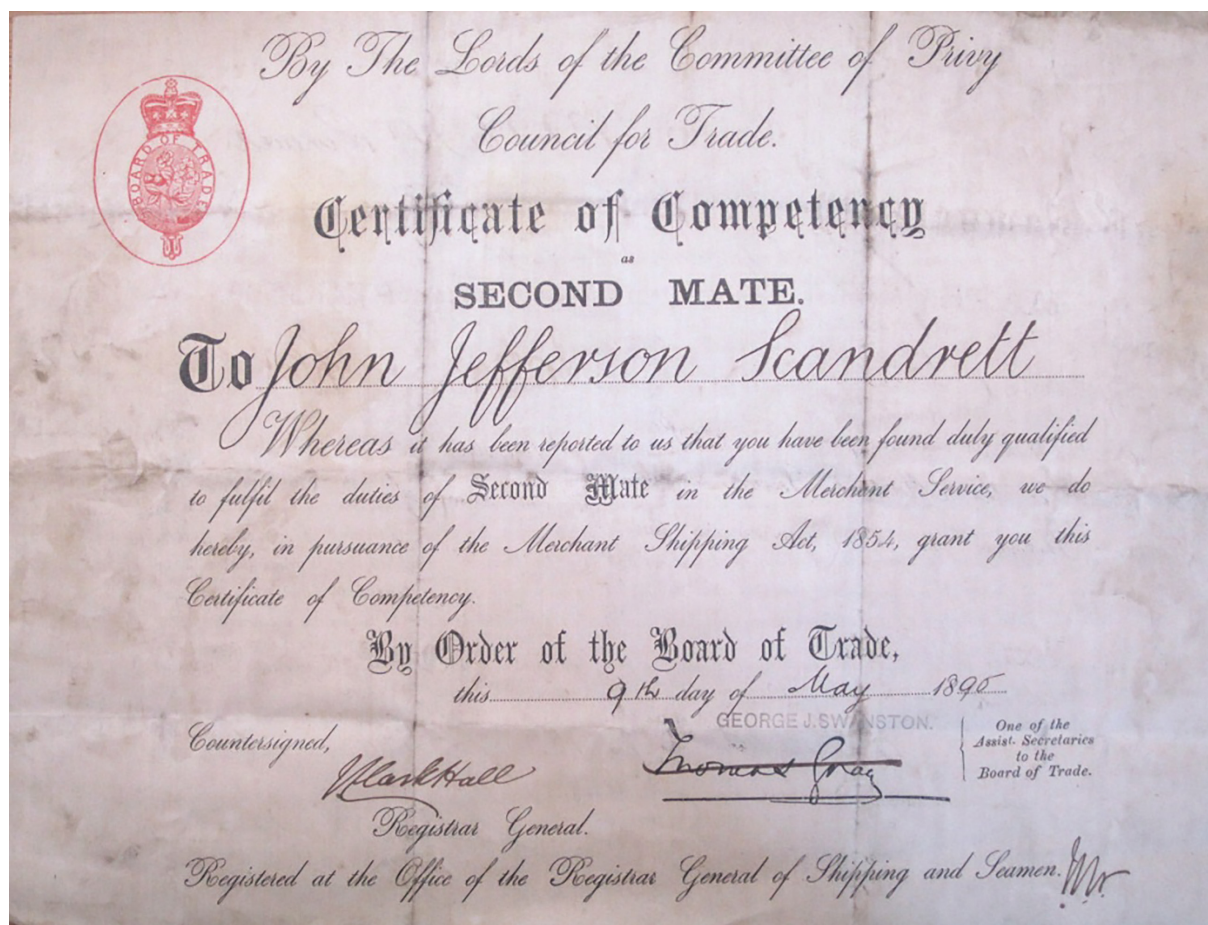 By The Lords of the Committee of Privy
Council for Trade.
BOARD OF TRADE
Certificate of Competency
as
SECOND MATE.
To John Jefferson Scandrett
Whereas it has been reported to us that you have been found duly qualified
to fulfil the duties of Second Mate in the Merchant Service, we do
hereby, in pursuance of the Merchant Shipping Act, 1854, grant you this
Certificate of Competency.
By Order of the Board of Trade,
this 9th day of May 1895
GEORGE J. SWANSTON.
Countersigned,
Thomas Gray
One of the
Assist. Secretaries
to the
Board of Trade.
Hall
Registrar General.
Registered at the Office of the Registrar General of Shipping and Seamen.